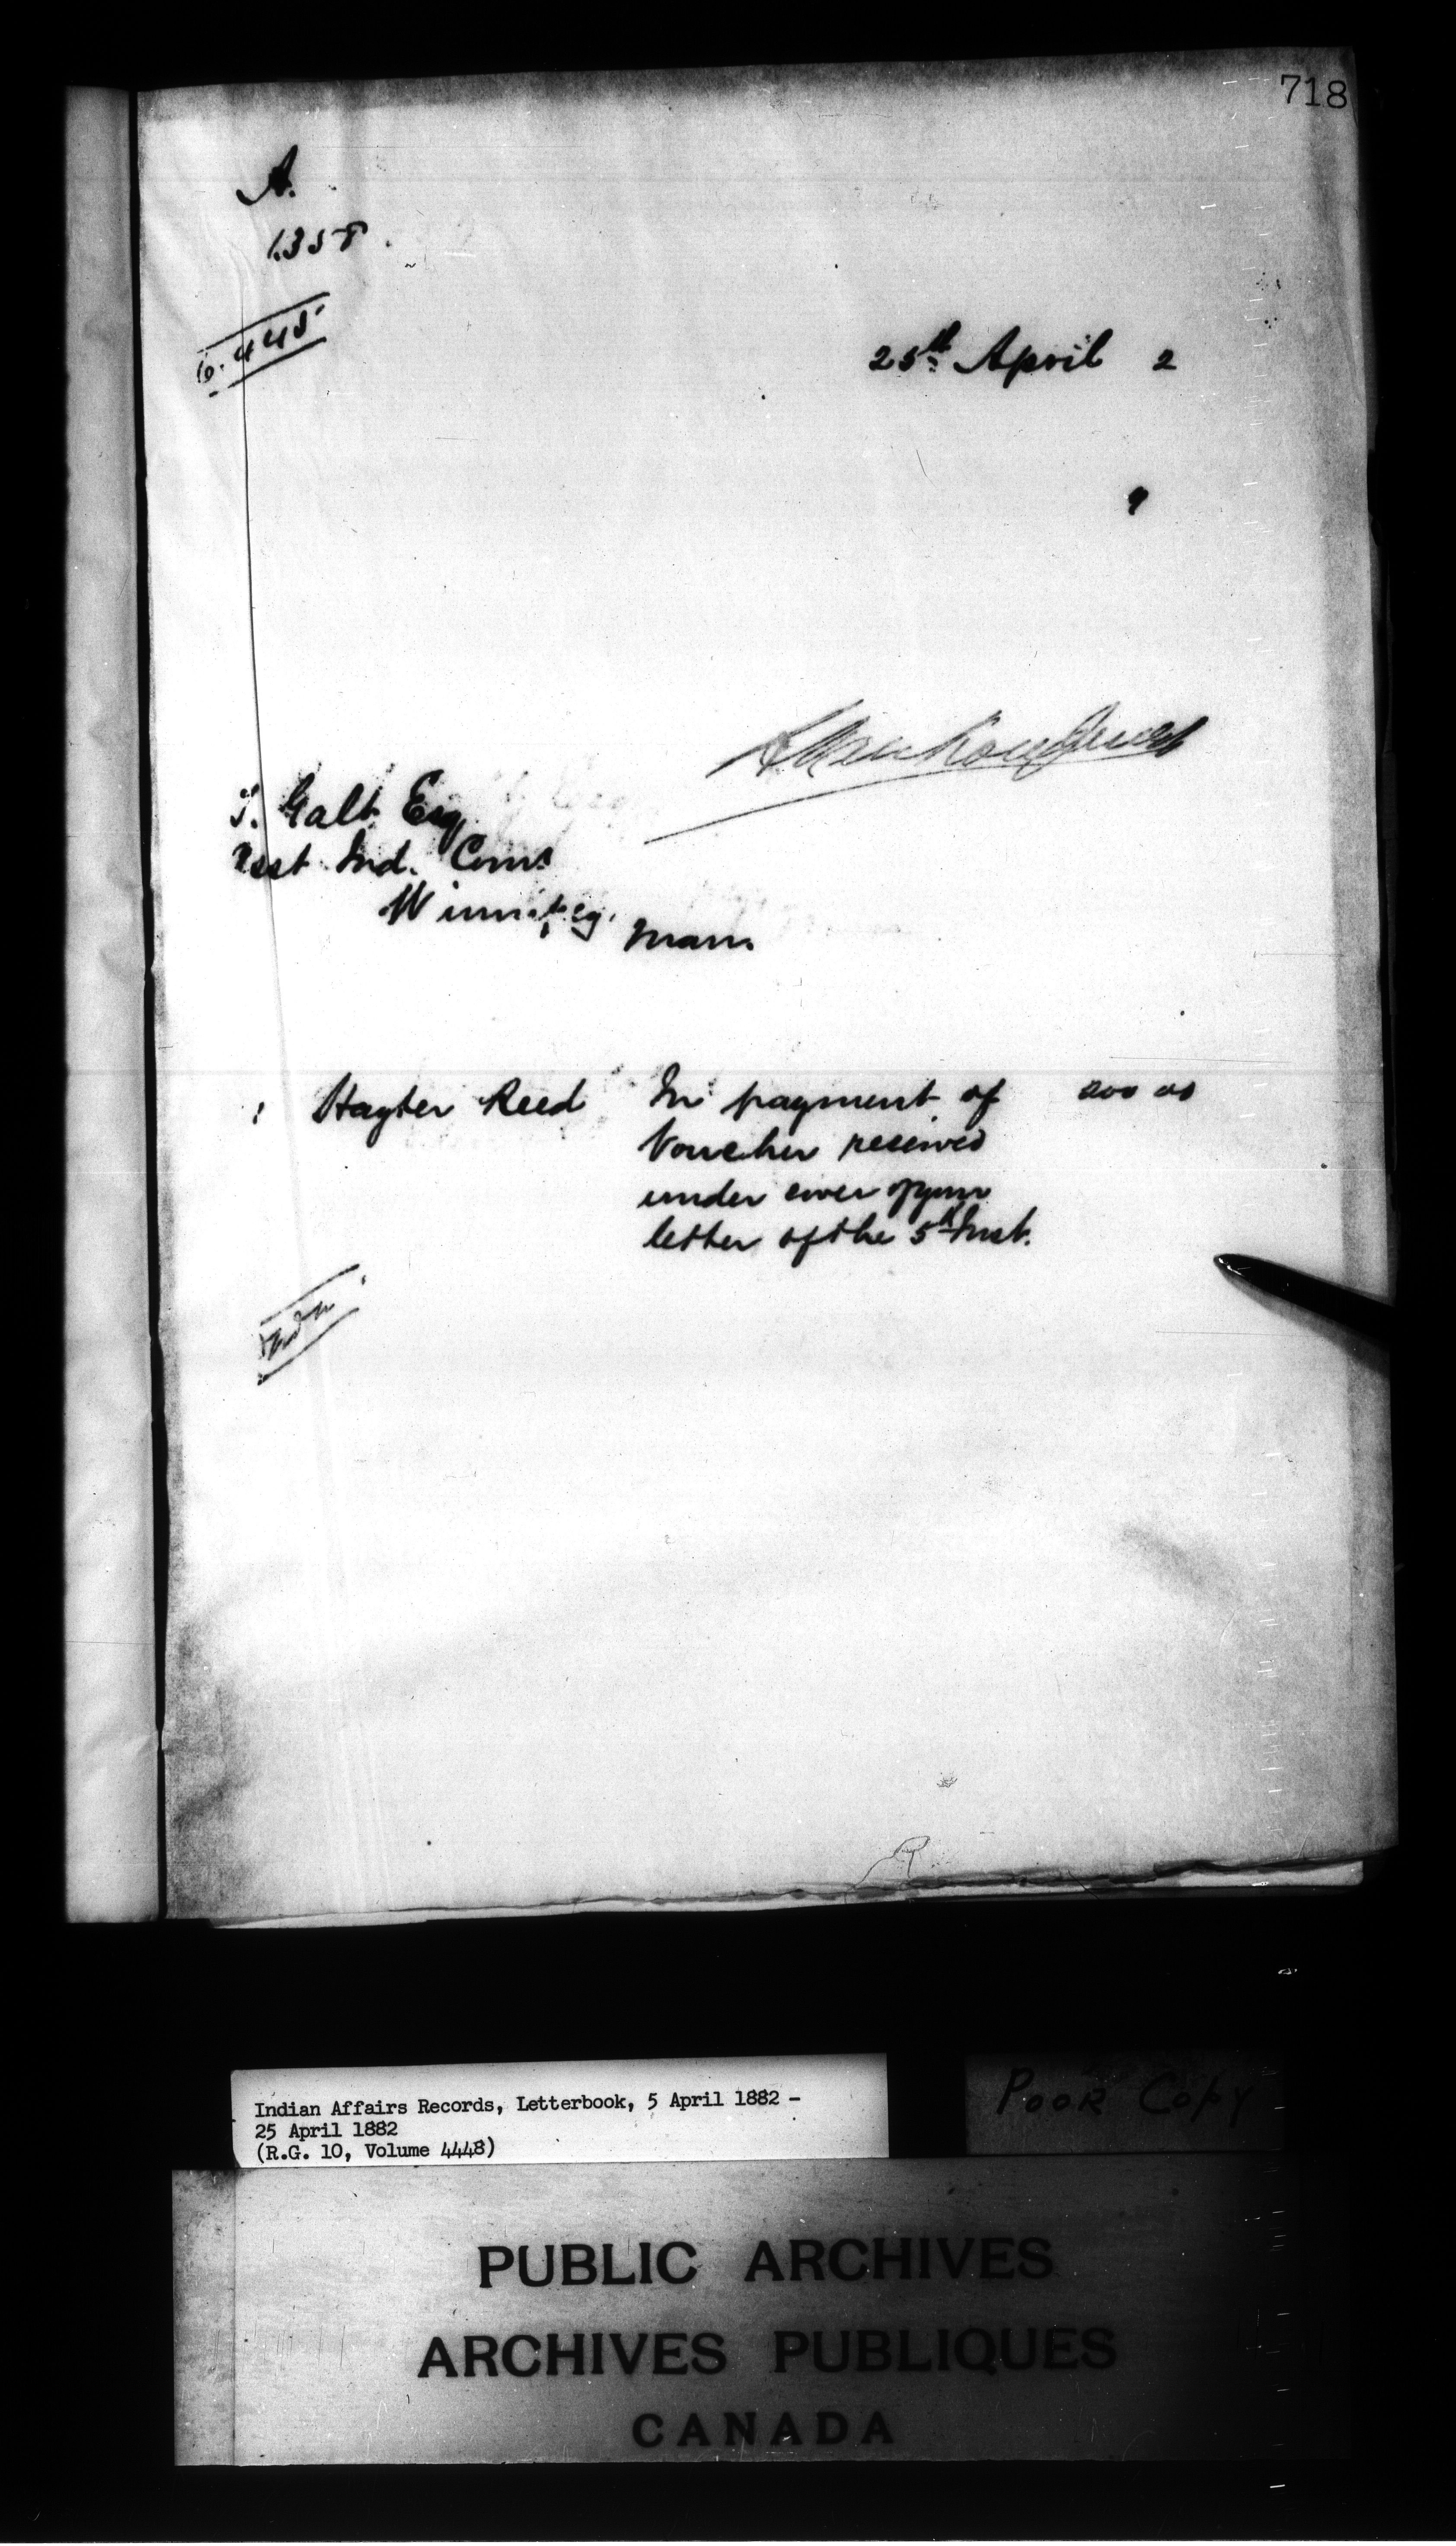 718
A.
1358.
6.445
25th April 2
T. Galt Esq
Asst Ind. Comr
Winnipeg.
Man.
1 Hayter Reed In payment of 200 00
Voucher received
under cover of your
letter of the 5th Inst.
Indian Affairs Records, Letterbook, 5 April 1882 -
25 April 1882
(R.G. 10, Volume 4448)
POOR COPY
PUBLIC ARCHIVES
ARCHIVES PUBLIQUES
CANADA